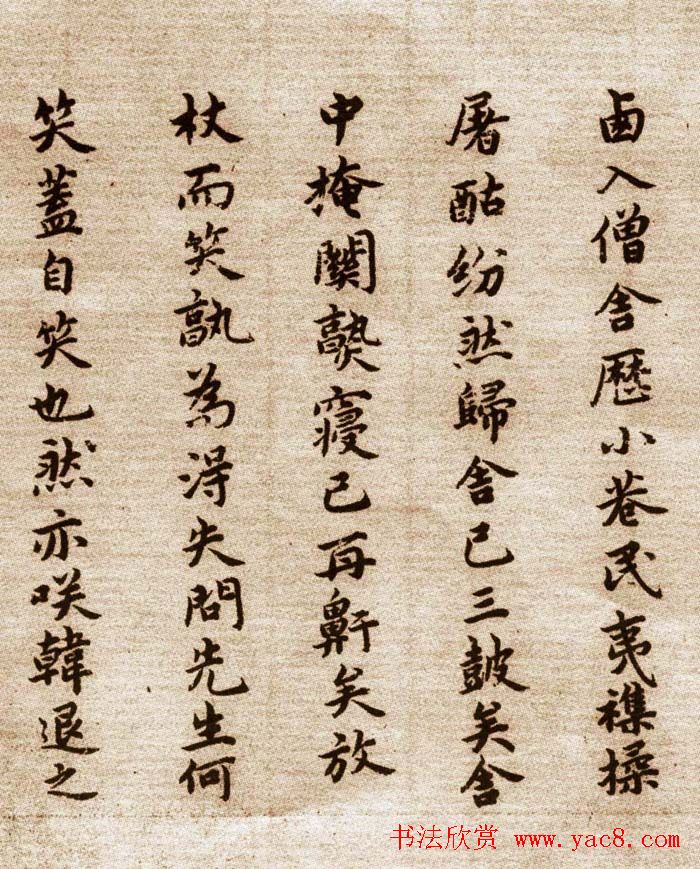 卥入僧舍歷小巷民夷襍揉
屠酤紛然歸舍已三鼓矣舍
中掩關熟寢已再鼾矣放
杖而笑孰為得失問先生何
笑蓋自笑也然亦咲韓退之
书法欣赏 www.yac8.com